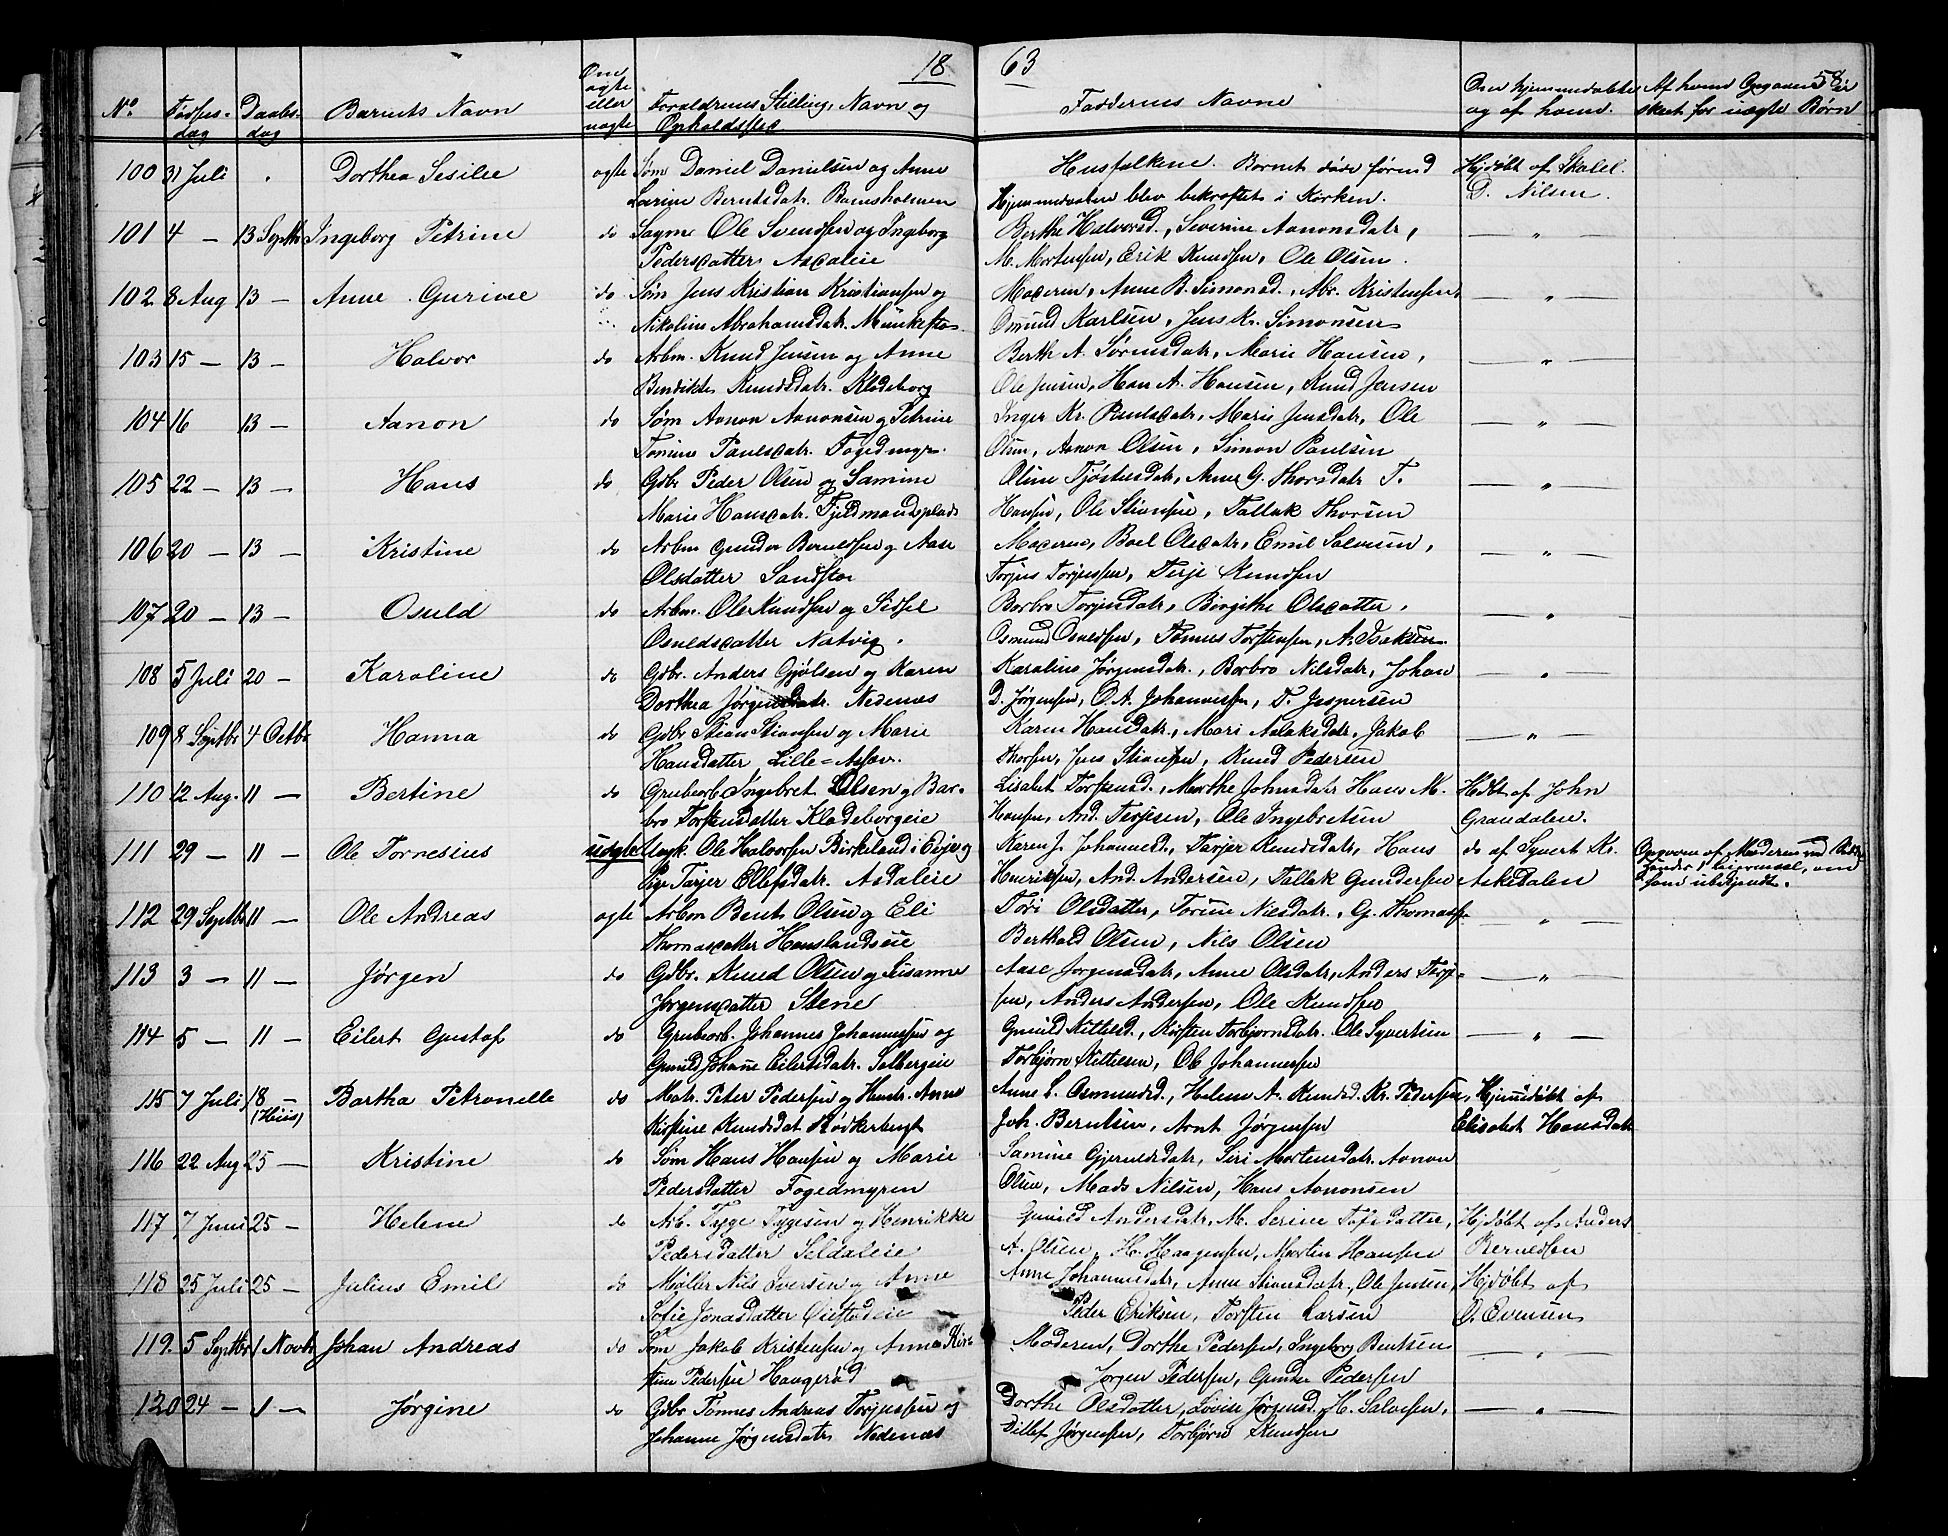 18 63
58
No. Fødsels-dag Daabs-dag Barnets Navn Om ægte eller uægte Forældrenes Stilling, Navn og Opholdssted Faddernes Navne Om hjemmedøbt og af hvem. Af hvem Opgaven er skeet for uægte Børn
100 31 Juli Dorthea Sesilie ægte Søm Daniel Danielsen og Anne Husfolkene. Barnet døde førend Hjdøbt af Skolel.
Larine Berntsdatr. Hjemmedaaben blev bekræftet i Kirken. D. Nilsen.
101 4 — 13 Septbr Ingeborg Petrine do Ole Svendsen og Ingeborg Berthe Halvorsd., Severine Aanonsdatr, — " —
Pedersdatter Ascaleie M. Mortensen, Erik Knudsen, Ole Olsen.
102 8 Aug 13 — Anne Gurine do Søm Jens Kristian Kristiansen og Moderen, Anne B. Simonsd., Abr. Kristensen, — " —
Nikoline Abrahamsdatr. Osmund Karlsen, Jens Kr. Simonsen
103 15 — 13 — Halvor do Arbm. Knud Jensen og Anne Berth A. Sørensdatr, Marie Hansen, — " —
Bendikte Knudsdatr. Klødeborg Ole Jensen, Han A. Hansen, Knud Jensen
104 16 13 — Aanon do Søm Aanon Aanonsen og Petrine Inger Kr. Paulsdatr, Marie Jensdatr, Ole — " —
Tomine Paulsdatr. Fogedmyr. Olsen, Aanon Olsen, Simon Paulsen
105 22 — 13 — Hans do Gdbr Peder Olsen og Samine Oline Tjøstelsdatr, Anne G. Thorsdatr T. — " —
Marie Hansdatr. Fjeldmandsplads Hansen, Ole Stiansen, Tallak Thorsen
106 20 — 13 — Kristine do Arbm Gunder Berntsen og Aase Moderen, Boel Olsdatr, Emil Salvesen, — " —
Olsdatter Sandstø Torjus Torjussen, Terje Knudsen
107 20 — 13 — Osuld do Arbm. Ole Knudsen og Sidsel Borbro Torjusdatr, Birgithe Olsdatter, — " —
Osuldsdatter Natvig. Osmund Osuldsen, Tomas Torstensen, A. Isaksen
108 5 Juli 20 — Karoline do Gdbr. Anders Gjølsen og Karen Karoline Jørgensdatr., Borbro Nilsdatr, Johan — " —
Dorthea Jørgensdatr. Nedenæs D. Jørgensen, O. A. Johannesen, T. Jespersen
109 8 Septbr 4 Octbr Hanna do Gdbr Stian Stiansen og Marie Karen Hansdatr, Mari Aslaksdatr, Jakob — " —
Hansdatter Lille= Thorsen, Jens Stiansen, Knud Pedersen
110 12 Aug. 11 — Bertine do Grubearb Ingebret Olsen og Bar- Lisabet Torstensd., Marthe Johnsdatr Hans M. Hdbt af John
bro Torstensdatter Klødeborgeie Hansen, And. Terjesen, Ole Ingebretsen Graudalen.
111 29 — 11 — Ole Tornesius uægte Ungk. Ole Halvorsen Birkeland i Evje og Karen J. Johannesd., Tarjer Knudsdatr, Hans do af Syvert Kr. Opgaven af Moderen ved
Pige Tarjer Ellefsdatr. Asdaleie Henriksen, And. Andersen, Tallak Gundersen Askedalen som ubekjendt.
112 29 Septbr 11 — Ole Andreas ægte Arbm Bent Olsen og Eli Tori Olsdatter, Torine Nilsdatr., G. Thomass. — " —
Thomasdatter Hanslandseie Berthold Olsen, Nils Olsen
113 3 — 11 — Jørgen do Gdbr. Knud Olsen og Susanne Aase Jørgensdatr, Anne Olsdatr, Anders Terje- — " —
Jørgensdatter Stene sen, Anders Andersen, Ole Knudsen
114 5 — 11 — Eilert Gustaf do Grubearb. Johannes Johannessen og Gunild Kittelsd., Kirsten Torbjørnsdatr. Ole Syvertsen — " —
Gunild Johanne Eilertsdatr. Solbergeie Torbjørn Kittelsen, Ole Johannessen
115 7 Juli 18 (Hiis) Bartha Petronelle do Matr. Peter Pedersen og Hustr. Anne Anne L. Osmundsd., Helene A. Knudsd. Kr. Pedersen, Hjemdøbt af
Kirstine Knudsdat Joh. Berntsen, Arnt Jørgensen Elisabet Hansdatr
116 22 Aug 25 — Kristine do Søm Hans Hansen og Marie Samine Gjeruldsdatr, Siri Mortensdatr. Aanon
Pedersdatter Fogedmyren Olsen, Mads Nilsen, Hans Aanonsen
117 7 Juni 25 — Helene do Arb. Tyge Tygesen og Henrikke Gunild Andersdatr, M. Serine Tofsdatter, Hjdøbt af Anders
Pedersdatter Seldaleie A. Olsen, H. Haagensen, Martin Hansen Berntsen
118 25 Juli 25 — Julius Emil do Møller Nils Iversen og Anne Anne Johannesdatr, Anne Stiansdatr, Ole Jensen, Hjdøbt af
Sofie Jonasdatter Øiestadeie Peder Eriksen, Torsten Larsen O. Evensen
119. 5 Septbr 1 Novbr Johan Andreas do Søm Jakob Kristensen og Anna Kir- Moderen, Dorthe Pedersen, Ingeborg Bentsen — " —
stine Pedersen Haugerød Jørgen Pedersen, Gunder Pedersen
120 24 — 1 — Jørgine do Gdbr Tønnes Andreas Torjussen og Dorthe Olsdatter, Lovise Jørgensd., H. Salvesen, — " —
Johanne Jørgensdatr Nedenæs Ditlef Jørgensen, Torbjørn Knudsen